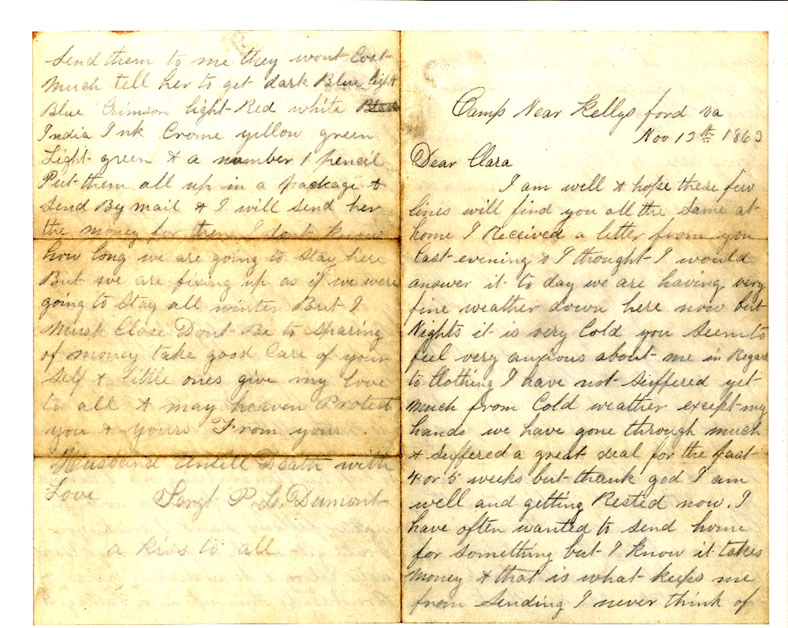 Camp Near Kellys ford va
Nov 13th 1863
Dear Clara
I am well & hope these few
lines will find you all the same at
home I Received a letter from you
last evening & I thought I would
answer it to day we are having very
fine weather down here now but
Nights it is very Cold you seem to
feel very anxious about me in Regard
to Clothing I have not suffered yet
much from Cold weather except my
hands we have gone through much
& suffered a great deal for the past
4 or 5 weeks but thank god I am
well and getting Rested now. I
have often wanted to send home
for something but I know it takes
money & that is what keeps me
from sending I never think of
send them to me they wont Cost
much tell her to get dark Blue light
Blue Crimson light Red white
India Ink Crome yellow green
Light green & a number 1 pencil
Put them all up in a package &
send By mail & I will send her
the money for them I dont know
how long we are going to stay here
But we are fixing up as if we were
going to stay all winter But I
Must Close Dont Be to sparing
of money take good Care of your
self & little ones give my love
to all & may heaven Protect
you & yours From your
Husband untill Death with
Love Sergt P. L. Dumont
a kiss to all